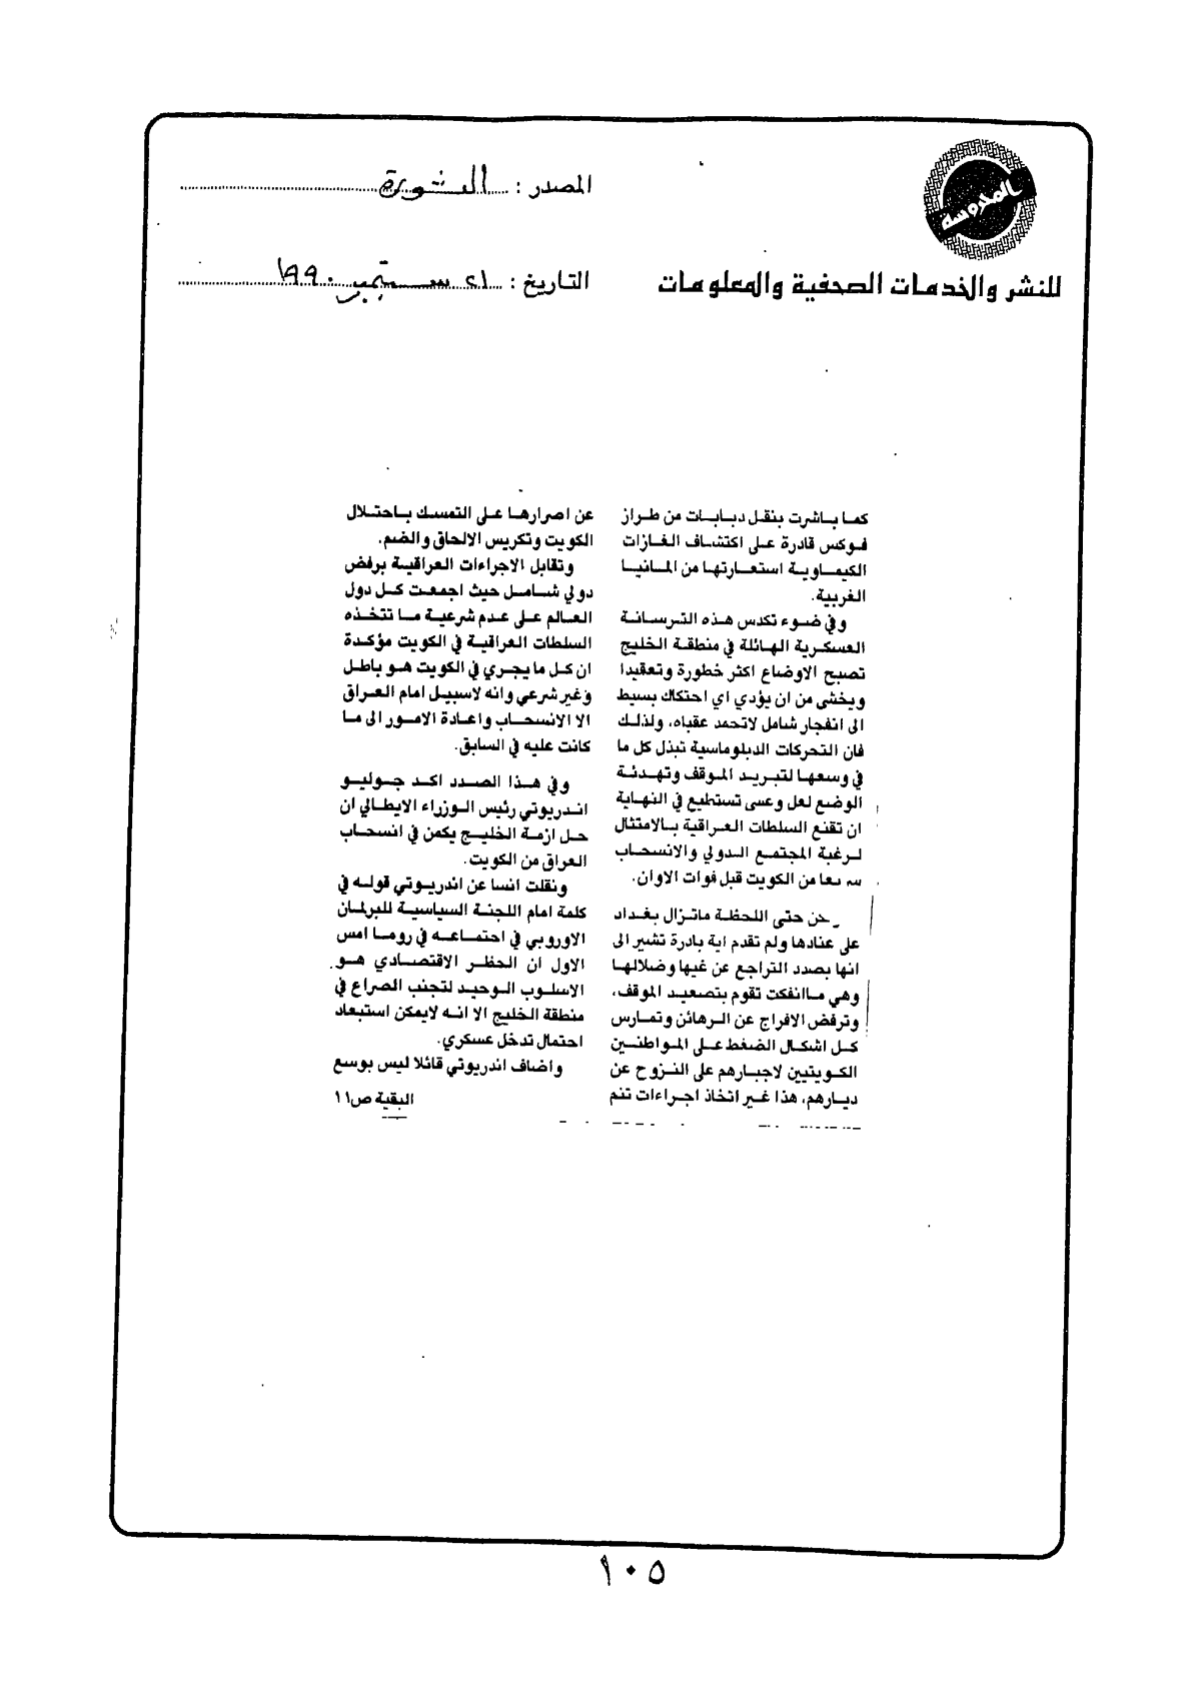 المدوسة
للنشر والخدمات الصحفية والمعلومات
المصدر : الثورة
التاريخ : ٢١ سبتمبر ١٩٩٠
كما باشرت بنقل دبابات من طراز
فوكس قادرة على اكتشاف الغازات
الكيماوية استعارتها من المانيا
الغربية.
وفي ضوء تكدس هذه الترسانة
العسكرية الهائلة في منطقة الخليج
تصبح الاوضاع اكثر خطورة وتعقيدا
ويخشى من ان يؤدي اي احتكاك بسيط
الى انفجار شامل لاتحمد عقباه، ولذلك
فان التحركات الدبلوماسية تبذل كل ما
في وسعها لتبريد الموقف وتهدئة
الوضع لعل وعسى تستطيع في النهاية
ان تقنع السلطات العراقية بالامتثال
لرغبة المجتمع الدولي والانسحاب
من الكويت قبل فوات الاوان.
حتى اللحظة ماتزال بغداد
على عنادها ولم تقدم اية بادرة تشير الى
انها بصدد التراجع عن غيها وضلالها
وهي ماانفكت تقوم بتصعيد الموقف،
وترفض الافراج عن الرهائن وتمارس
كل اشكال الضغط على المواطنين
الكويتيين لاجبارهم على النزوح عن
ديارهم، هذا غير اتخاذ اجراءات تنم
عن اصرارها على التمسك باحتلال
الكويت وتكريس الالحاق والضم.
وتقابل الاجراءات العراقية برفض
دولي شامل حيث اجمعت كل دول
العالم على عدم شرعية ما تتخذه
السلطات العراقية في الكويت مؤكدة
ان كل ما يجري في الكويت هو باطل
وغير شرعي وانه لاسبيل امام العراق
الا الانسحاب واعادة الامور الى ما
كانت عليه في السابق.
وفي هذا الصدد اكد جوليو
اندريوتي رئيس الوزراء الايطالي ان
حل ازمة الخليج يكمن في انسحاب
العراق من الكويت.
ونقلت انسا عن اندريوتي قوله في
كلمة امام اللجنة السياسية للبرلمان
الاوروبي في اجتماعه في روما امس
الاول ان الحظر الاقتصادي هو
الاسلوب الوحيد لتجنب الصراع في
منطقة الخليج الا انه لايمكن استبعاد
احتمال تدخل عسكري.
واضاف اندريوتي قائلا ليس بوسع
البقية ص١١
١٠٥